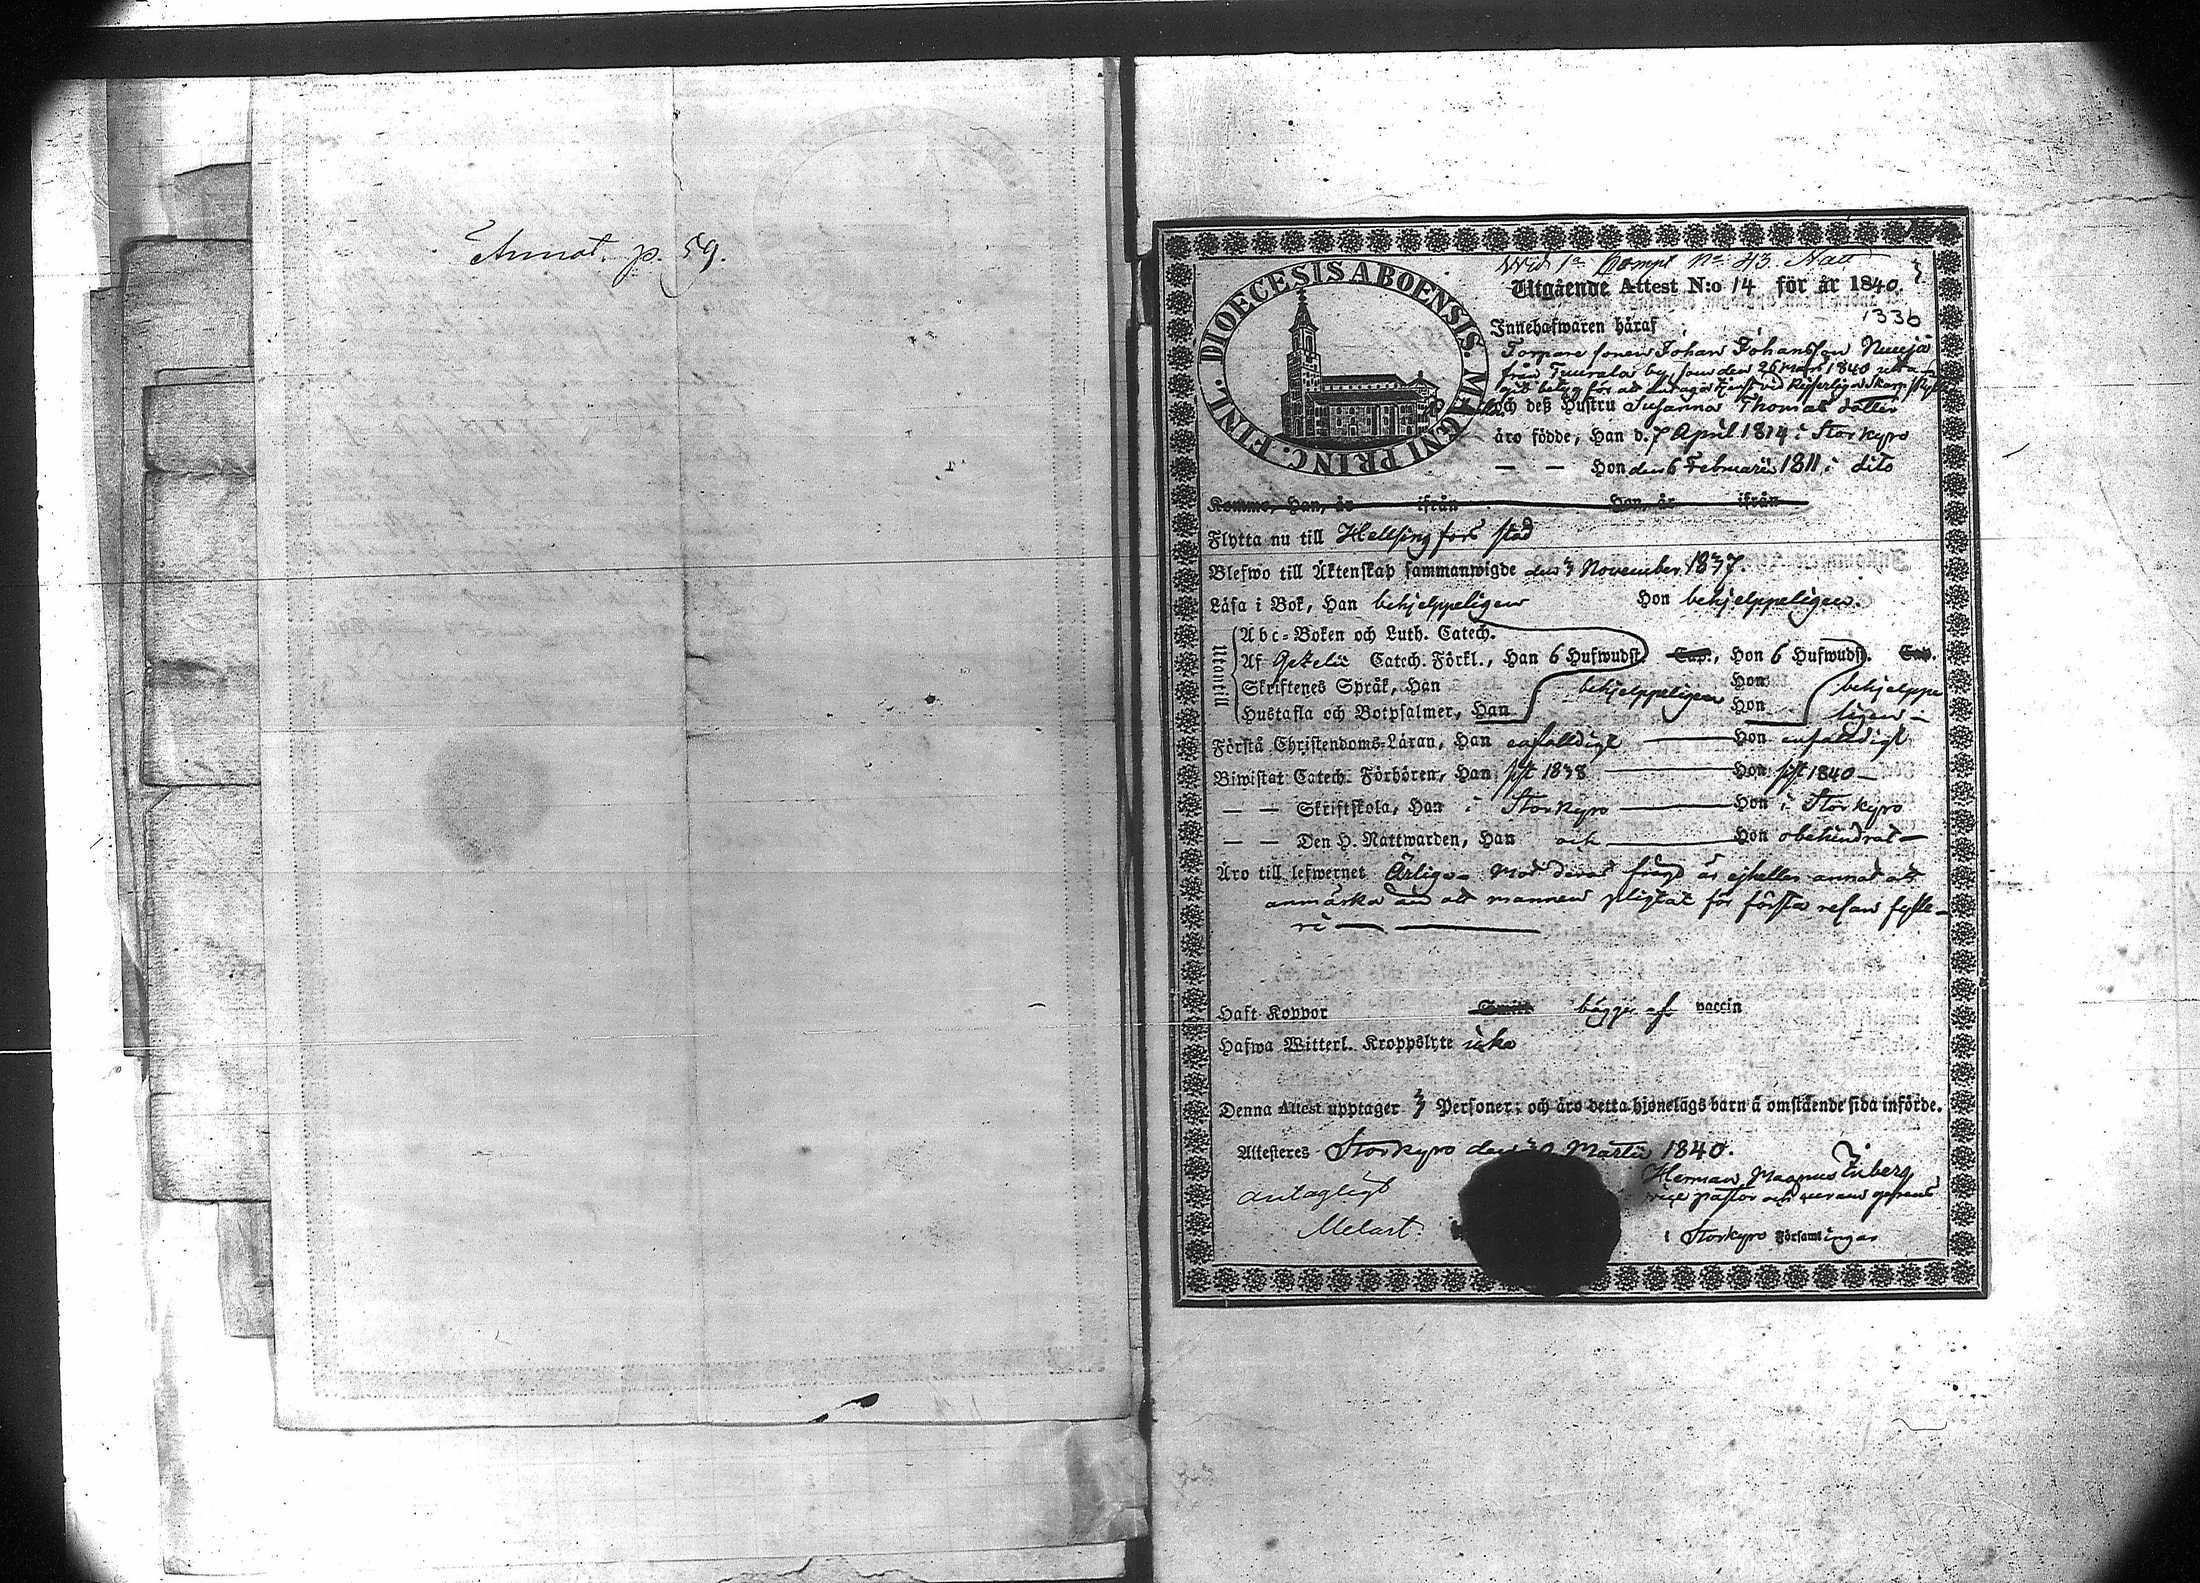 Annot. p. 59.
DIOECESIS ABOENSIS. MAGNI PRINC. FINL.
Wid 1a Komp. No 43. Natt
Utgående Attest N:o 14 för år 1840.
1336
Innehafwaren häraf
Torpare sonen Johan Johansson Neuyä
från Tuurala by, som den 26 Mars 1840 utta-
git betyg för att antaga tjenst vid Kejserliga Skarp
och deß Hustru Susanna Thomas dotter
äro födde, Han d. 7 April 1814 i Storkyro
— — Hon den 6 Februarii 1811 i dito
Komne, Han, år ifrån Hon, år ifrån
Flytta nu till Hellsingfors stad
Blefwo till Äktenskap sammanwigde den 3 November 1837.
Läsa i Bok, Han behjelppeligen Hon behjelppeligen.
Utantill
Abc-Boken och Luth. Catech.
Af Gezelii Catech. Förkl., Han 6 Hufwudst. Cap., Hon 6 Hufwudst. Cap.
Skriftenes Språk, Han behjelppeligen Hon behjelppe
Hustafla och Botpsalmer, Han Hon ligen —
Förstå Christendoms-Läran, Han enfalldigt — Hon enfalldigt
Biwistat Catech. Förhören, Han sist 1838 — Hon sist 1840 —
— — Skriftskola, Han i Storkyro — Hon i Storkyro
— — Den H. Nattwarden, Han och — Hon obehindrat —
Äro till lefwernet Ärliga. Mot deras frägd är ejheller annat att
anmärka än att mannen pligtat för första resan fylle-
ri — —
Haft Koppor Smitt bägge af vaccin
Hafwa Witterl. Kroppslyte icke
Denna Attest upptager 3 Personer; och äro detta hjonelags barn å omstående sida införde.
Attesteras Storkyro den Martii 1840.
Herman Magnus Enberg
antagligt
vice pastor och
Melart.
i Storkyro Församlingar